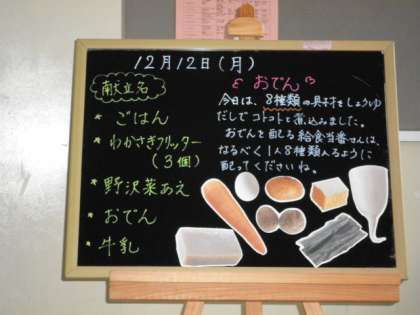 12月12日(月)
献立名
* ごはん
* わかさぎフリッター
(3個)
* 野沢菜あえ
* おでん
* 牛乳
おでん
今日は、8種類の具材をしょうゆ
だしでコトコトと煮込みました。
おでんを配る給食当番さんは、
なるべく1人8種類入るように
配ってくださいね。